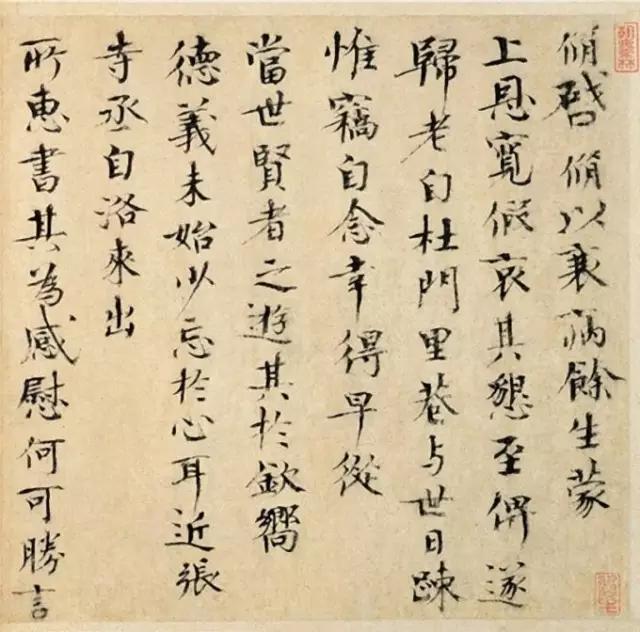 脩啓脩以衰病餘生蒙
上恩寬假哀其懇至俾遂
歸老自杜門里巷与世日疎
惟竊自念幸得早從
當世賢者之遊其於欽嚮
德義未始少忘於心耳近張
寺丞自洛來出
所惠書其為感慰何可勝言